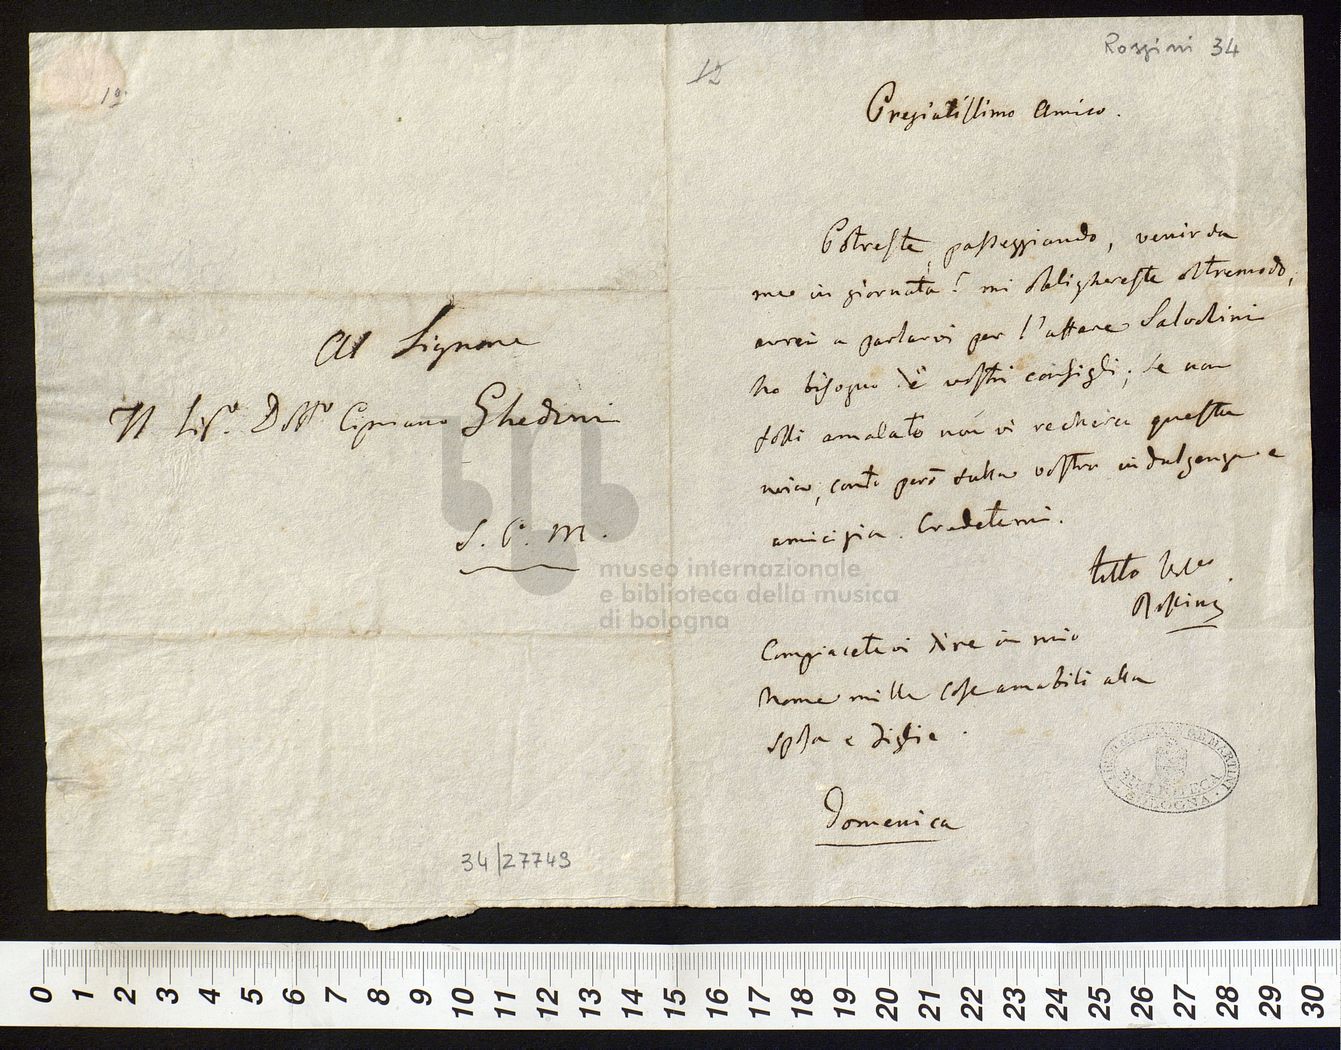 12
Al Signore
Il Sig.r Dott.r Cipriano Ghedini
S. P. M.
34/27749
12
Rossini 34
Pregiatissimo Amico.
Potreste, passeggiando, venir da
me in giornata? mi obblighereste oltremodo,
avrei a parlarvi per l'affare Salvolini
ho bisogno de vostri consigli; se non
fossi amalato non vi recherei questa
noia, conto però sulla vostra indulgenza e
amicizia. Credetemi.
tutto Vostro
Rossini
Compiacetevi dire in mio
Nome mille cose amabili alla
sposa e figlie.
Domenica
BIBLIOTECA
BOLOGNA
museo internazionale
e biblioteca della musica
di bologna
0 1 2 3 4 5 6 7 8 9 10 11 12 13 14 15 16 17 18 19 20 21 22 23 24 25 26 27 28 29 30